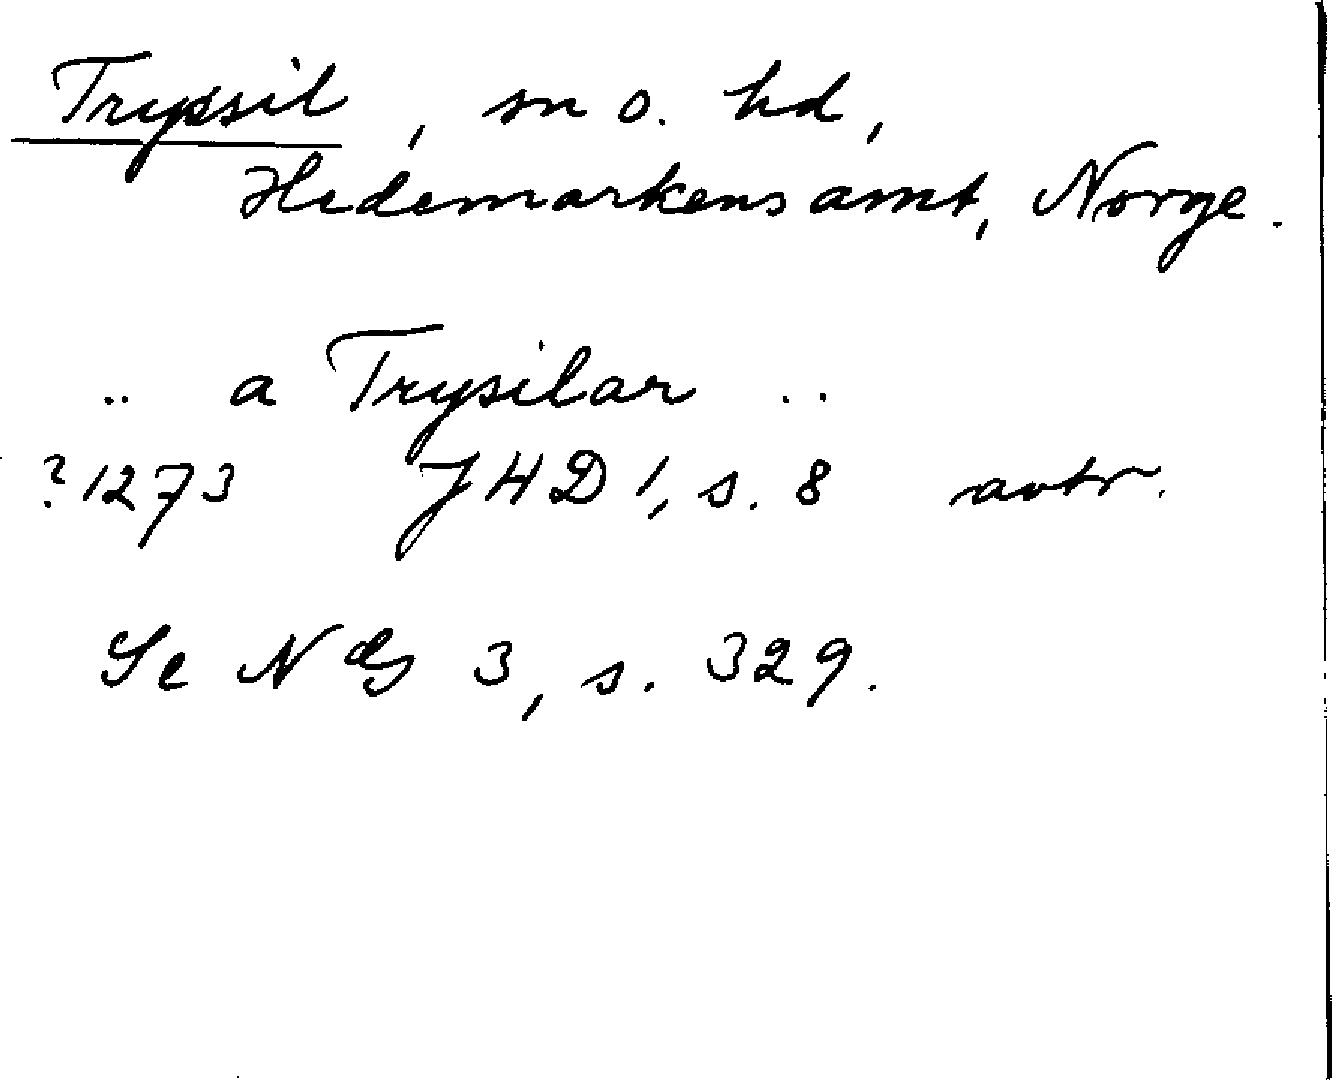 Tryssil, sn o. hd,
Hedemarkens amt, Norge.
.. a Trysilar ..
?1273 JHD 1, s. 8 avtr.
Se NG 3, s. 329.